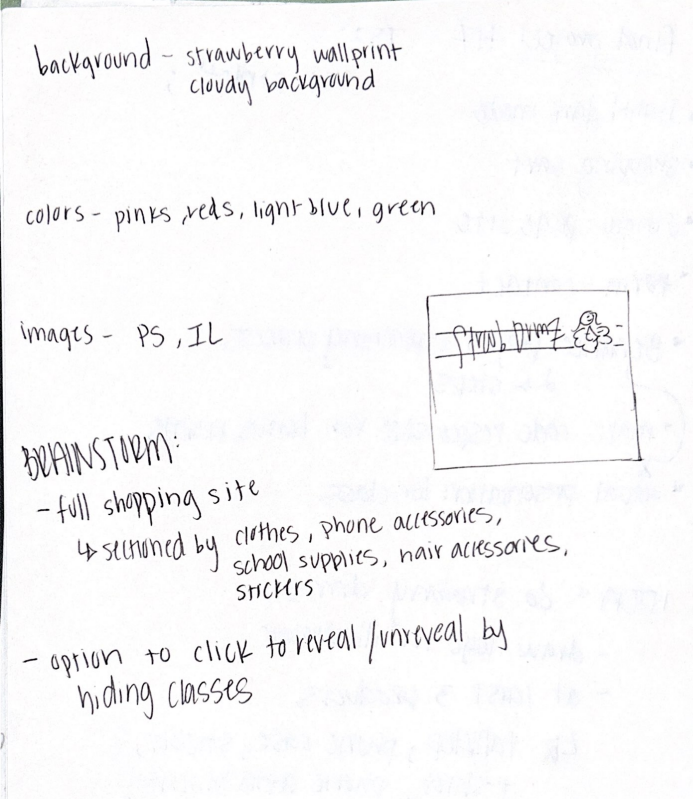 background - strawberry wallprint
cloudy background
colors - pinks, reds, light blue, green
images - PS, IL
BRAINSTORM:
- full shopping site
↳ sectioned by clothes, phone accessories,
school supplies, hair accessories,
stickers
- option to click to reveal/unreveal by
hiding classes